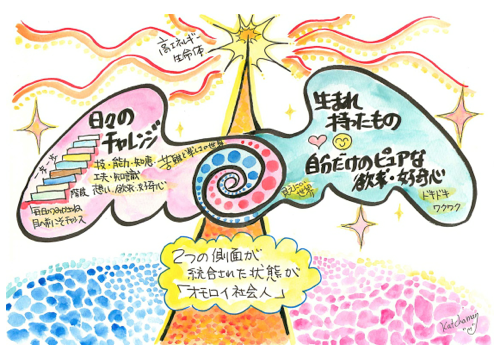 高エネルギー
生命体
日々の
チャレンジ
一歩一歩
階段
技・能力・知恵
工夫・知識
想い・欲求・好奇心
苦難と楽しさの世界
毎日のつみかさね
目の前にそっと
生まれ
持ったもの
自分だけのピュアな
欲求・好奇心
ドキドキ
ワクワク
見えない世界
2つの側面が
統合された状態が
「オモロイ社会人」
Katchaman